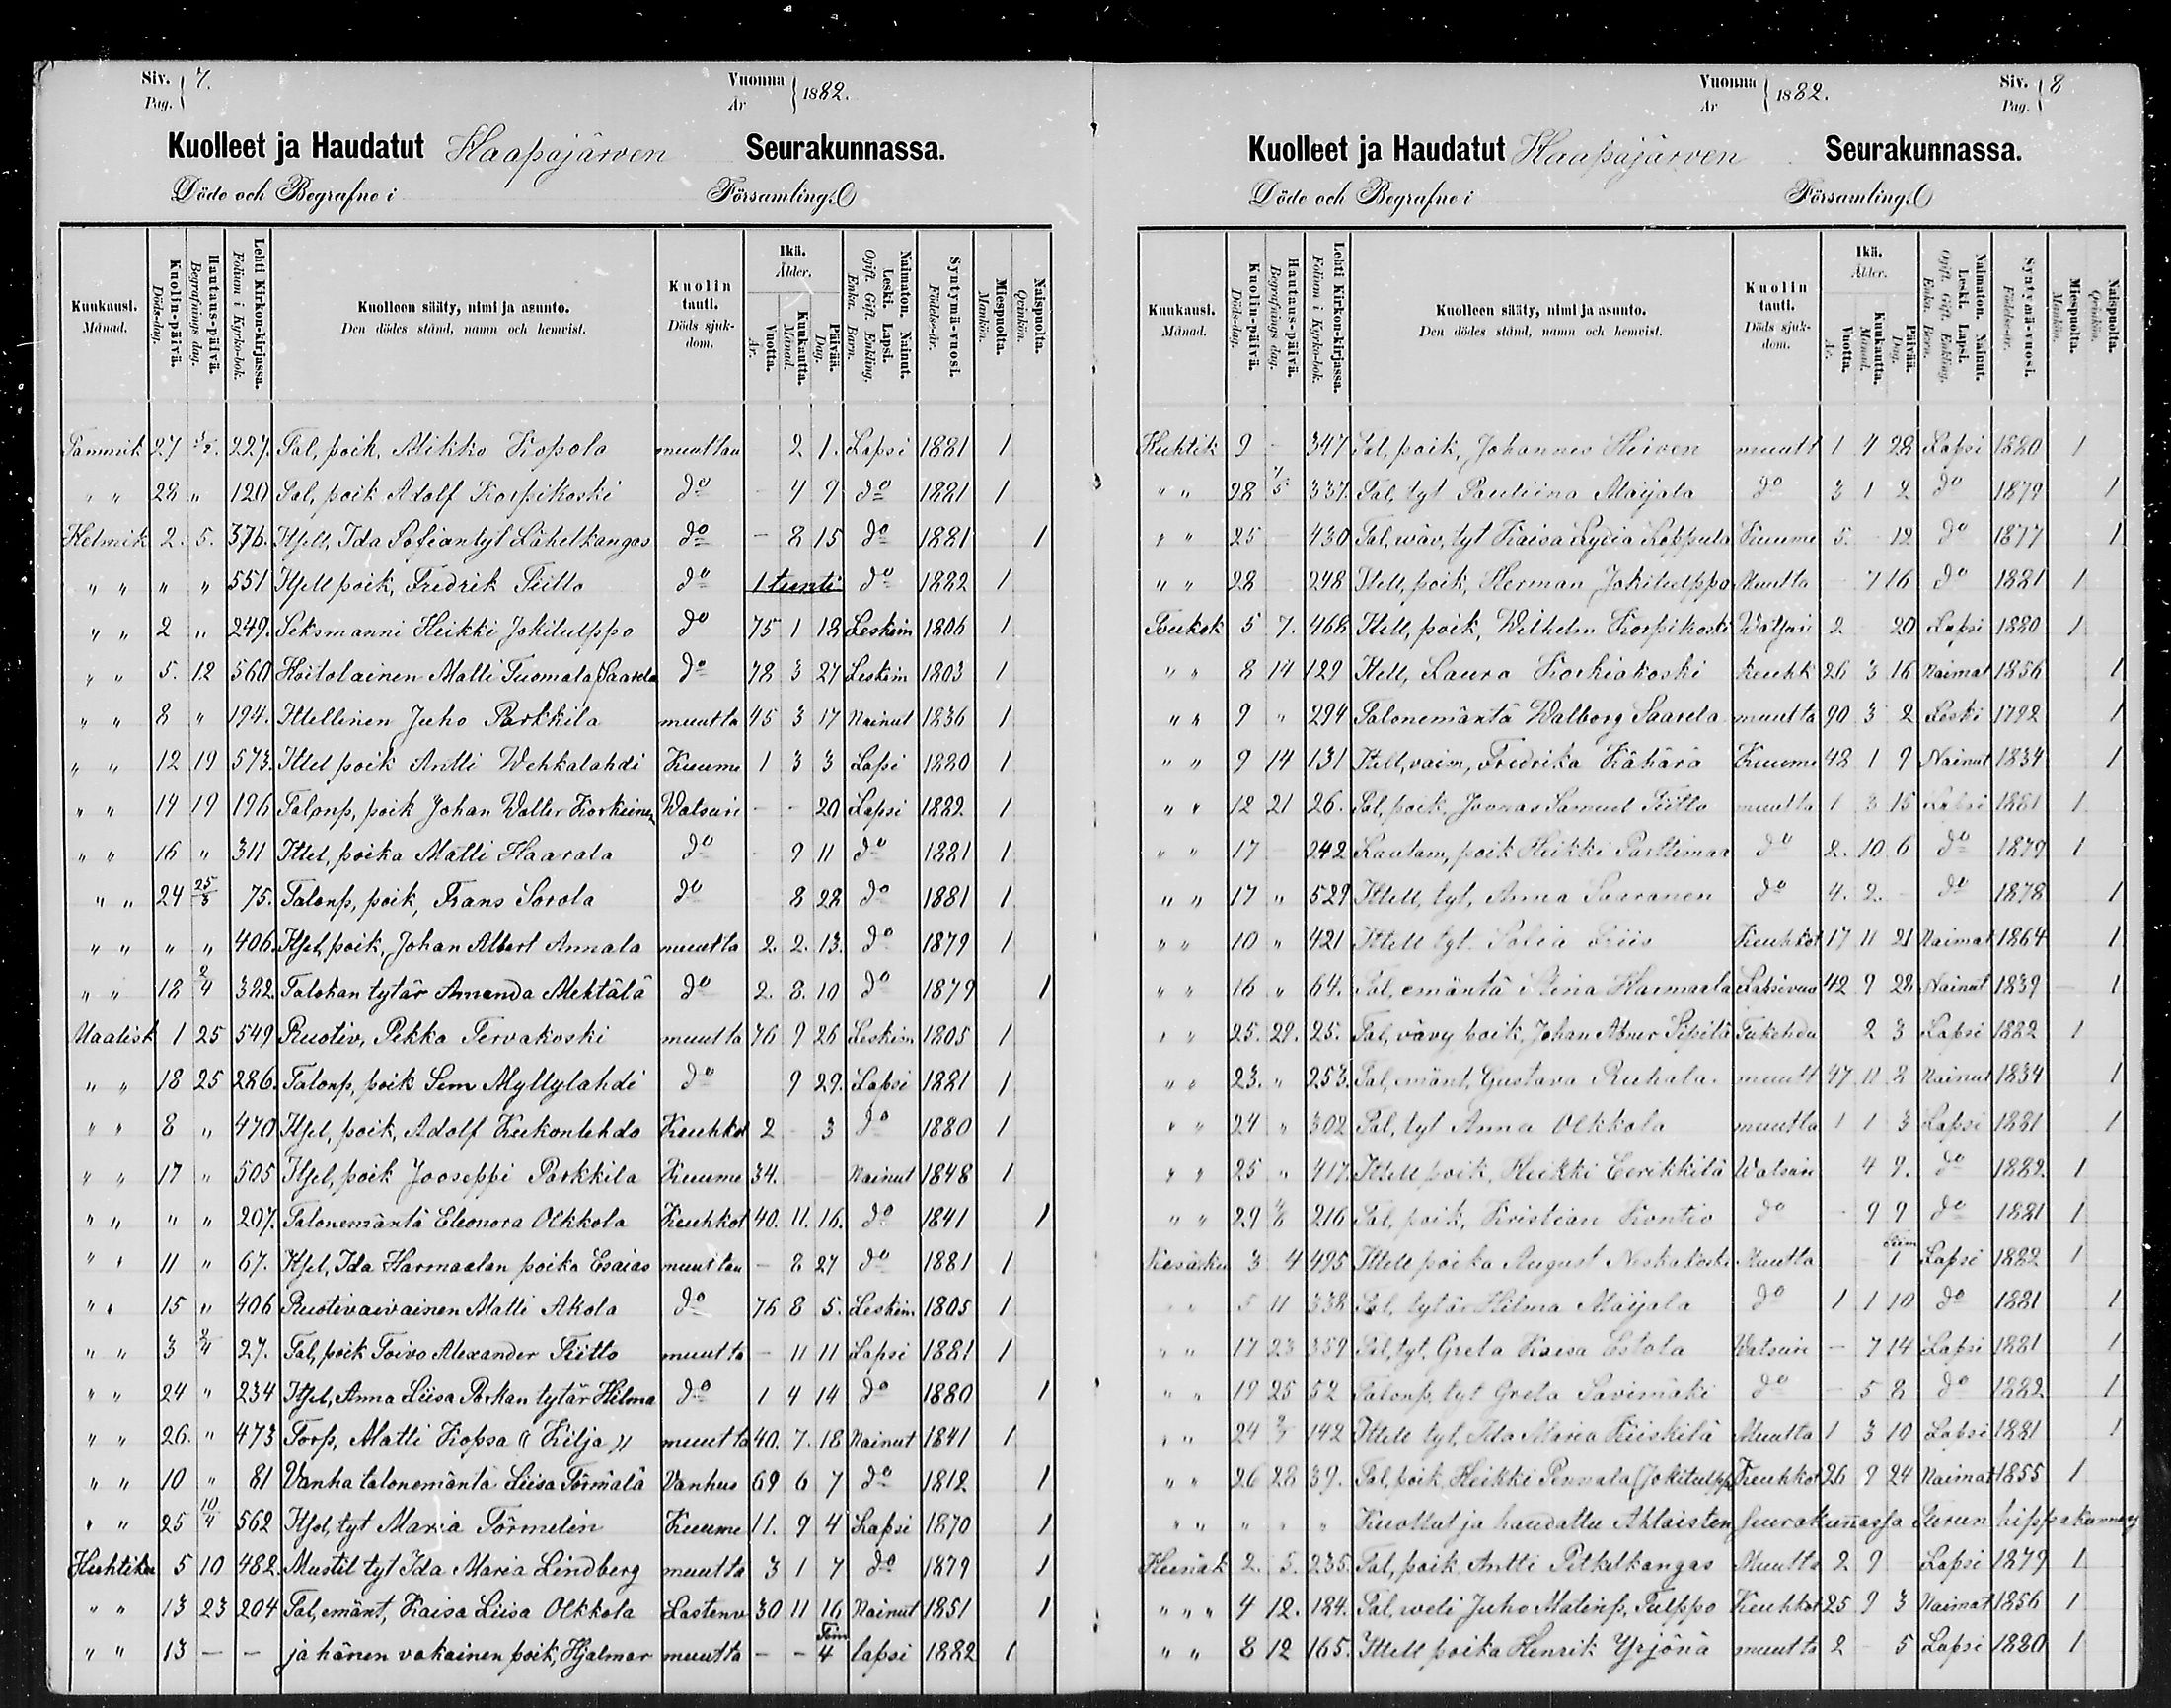 Siv. Pag. 7.
Vuonna År 1882.
Kuolleet ja Haudatut Haapajärven Seurakunnassa.
Döde och Begrafne i Församling.
Kuukausi. Månad.
Kuolin-päivä. Döds-dag.
Hautaus-päivä. Begrafnings dag.
Lehti Kirkon-kirjassa. Folium i Kyrko-bok.
Kuolleen sääty, nimi ja asunto. Den dödes stånd, namn och hemvist.
Kuolin tauti. Döds sjukdom.
Ikä. Ålder.
Vuotta. År.
Kuukautta. Månad.
Päivää. Dag.
Naimaton. Nainut. Leski. Lapsi. Ogift. Gift. Enkling. Enka. Barn.
Syntymä-vuosi. Födelse-år.
Miespuolta. Mankön.
Naispuolta. Qvinkön.
Tammik 27 227. Tal, poik, Mikko Kopola muuttau 2 1. Lapsi 1881 1
" " 28 " 120 Tal, poik Adolf Korpikoski do - 4 9 do 1881 1
Helmik 2. 5. 376. Itsell, Ida Sofian tyt Lähetkangas do - 8 15 do 1881 1
" " " " 551 Itsell poik, Fredrik Tiitto do 1 tunti do 1882 1
" " 2 " 249. Seksmanni Heikki Jokitulppo do 75 1 18 Leskein 1806 1
" " 5. 12 560 Hoitolainen Matti Tuomala (Saarela do 78 3 27 Leskein 1803 1
" " 8 " 194. Ittellinen Juho Parkkila muutta 45 3 17 Nainut 1836 1
" " 12 19 573. Ittel poik Antti Wehkalahdi Kuume 1 3 3 Lapsi 1880 1
" " 14 19 196 Talonp, poik Johan Walter Korkeinen Watsuri - - 20 Lapsi 1882 1
" " 16 " 311 Ittel, poika Matti Haarala do 9 11 do 1881 1
" " 24 25/3 75. Talonp, poik, Frans Sorola do 8 28 do 1881 1
" " " " 406. Itsel, poik, Johan Albert Annala muutta 2. 2. 13. do 1879 1
" " 18 2/4 382. Talokan tytär Amanda Mehtälä do 2. 8. 10 do 1879 1
Maalisk 1 25 549 Ruotiv, Pekka Tervakoski muutta 76 9 26 Leskein 1805 1
" " 18 25 286. Talonp, poik Sem Myllylahdi do 9 29. Lapsi 1881 1
" " 8 " 470 Itsel, poik, Adolf Kukonlehdo Keuhkot 2 - 3 do 1880 1
" " 17 " 505 Itsel, poik Jooseppi Parkkila Kuume 34. - - Nainut 1848 1
" " " " 207. Talonemäntä Eleonora Olkkola Keuhkot 40. 11. 16. do 1841 1
" " 11 " 67. Itsel, Ida Harmaalan poika Esaias muuttau - 8 27 do 1881 1
" " 15 " 406 Ruotivaivainen Matti Akola do 76 8 5. Leskein 1805 1
" " 3 2/4 27. Tal, poik Toivo Alexander Tiitto muutta - 11 11 Lapsi 1881 1
" " 24 " 234 Itsel, Anna Liisa Porkan tytär Hilma do 1 4 14 do 1880 1
" " 26. " 473 Torp, Matti Kopsa (( Kilja )) muutta 40. 7. 18 Nainut 1841 1
" " 10 " 81 Vanha talonemäntä Liisa Törmälä Vanhus 69 6 7 do 1812 1
" " 25 10/4 562 Itsel, tyt Maria Törmelin Kuume 11. 9 4 Lapsi 1870 1
Huhtiku 5 10 482. Mustil tyt Ida Maria Lindberg muutta 3 1 7 do 1879 1
" " 13 23 204 Tal, emänt, Kaisa Liisa Olkkola Lastenv 30 11 16 Nainut 1851 1
" " 13 - - ja hänen vakainen poik, Hjalmar muutta - - 4 lapsi 1882 1
Vuonna År 1882.
Siv. Pag. 8
Kuolleet ja Haudatut Haapajärven Seurakunnassa.
Döde och Begrafne i Församling.
Kuukausi. Månad.
Kuolin-päivä. Döds-dag.
Hautaus-päivä. Begrafnings dag.
Lehti Kirkon-kirjassa. Folium i Kyrko-bok.
Kuolleen sääty, nimi ja asunto. Den dödes stånd, namn och hemvist.
Kuolin tauti. Döds sjukdom.
Ikä. Ålder.
Vuotta. År.
Kuukautta. Månad.
Päivää. Dag.
Naimaton. Nainut. Leski. Lapsi. Ogift. Gift. Enkling. Enka. Barn.
Syntymä-vuosi. Födelse-år.
Miespuolta. Mankön.
Naispuolta. Qvinkön.
Huhtik 9 - 347 Tal, poik, Johannes Hirven muutt 1 4 28 Lapsi 1880 1
" " 28 337. Tal, tyt Pauliina Maijala do 3 1 2 do 1879 1
" " 25 - 430 Tal, wäv, tyt Kaisa Lydia Loppula Kuume 5. - 12 do 1877 1
" " 28 248 Itell, poik, Herman Jokitulppo Muutta 7 16 do 1881 1
Toukok 5 7. 468 Itell, poik, Wilhelm Korpikoski Watsuri 2 20 Lapsi 1880 1
" " 8 14 129 Itell, Laura Korkiakoski keuhk 26 3 16 Naimat 1856 1
" " 9 " 294 Talonemäntä Walborg Saarela muutta 90 3 2 Leski 1792 1
" " 9 14 131 Itell, vaim, Fredrika Kähärä Kuume 48 1 9 Nainut 1834 1
" " 12 21 26. Tal, poik Joonas Samuel Tiitto muutta 1 3 15 Lapsi 1881 1
" " 17 - 242 Lautam, poik Heikki Parttimaa do 2. 10 6 do 1879 1
" " 17 " 529 Ittell, tyt, Anna Saaranen do 4. 2. - do 1878 1
" " 10 " 421 Ittell tyt Sofia Friis Keuhkot 17 11 21 Naimat 1864 1
" " 16 " 64. Tal, emäntä Stina Harmaala Lapsivuo 42 9 28 Nainut 1839 1
" " 25. 29. 25. Tal, vävy poik, Johan Abner Pipitä Tukehdu 2 3 Lapsi 1882 1
" " 23. " 253. Tal, emänt, Gustava Ruhala. muutt 47 11 2 Nainut 1834 1
" " 24 " 302 Tal, tyt Anna Olkkola muutta 1 1 3 Lapsi 1881 1
" " 25 " 417. Ittell poik, Heikki Eerikkilä Watsuri 4 9. do 1882. 1
" " 29 216 Tal, poik, Kristian Kontio do - 9 9 do 1881 1
Kesäku 3 4 495 Ittell poika August Niskakoski Muutta 1 Lapsi 1882 1
" " 5 11 338 Tal, tytär Hilma Maijala do 1 1 10 do 1881 1
" " 17 23 359 Tal, tyt, Greta Kaisa Estola Watsuri - 7 14 Lapsi 1881 1
" " 19 25 52 Talonp, tyt Greta Savimäki do - 5 8 do 1882 1
" " 24 142 Ittell tyt, Ida Maria Kiiskilä Muutta 1 3 10 Lapsi 1881 1
" " 26 28 39. Tal, poik, Heikki Pennala (Jokitulppo Keuhkot 26 9 24 Naimat 1855 1
" " " " " Kuollut ja haudattu Ahlaisten seurakunnassa
Heinäk 2. 5. 235. Tal, poik, Antti Pitkelkangas Muutta 2 9 Lapsi 1879 1
" " " 4 12. 184. Tal, weli Juho Matinp, Tulppo Keuhkot 25 9 3 Naimat 1856 1
" " 8 12 165. Ittell poika Henrik Yrjönä muutta 2 - 5 Lapsi 1880 1